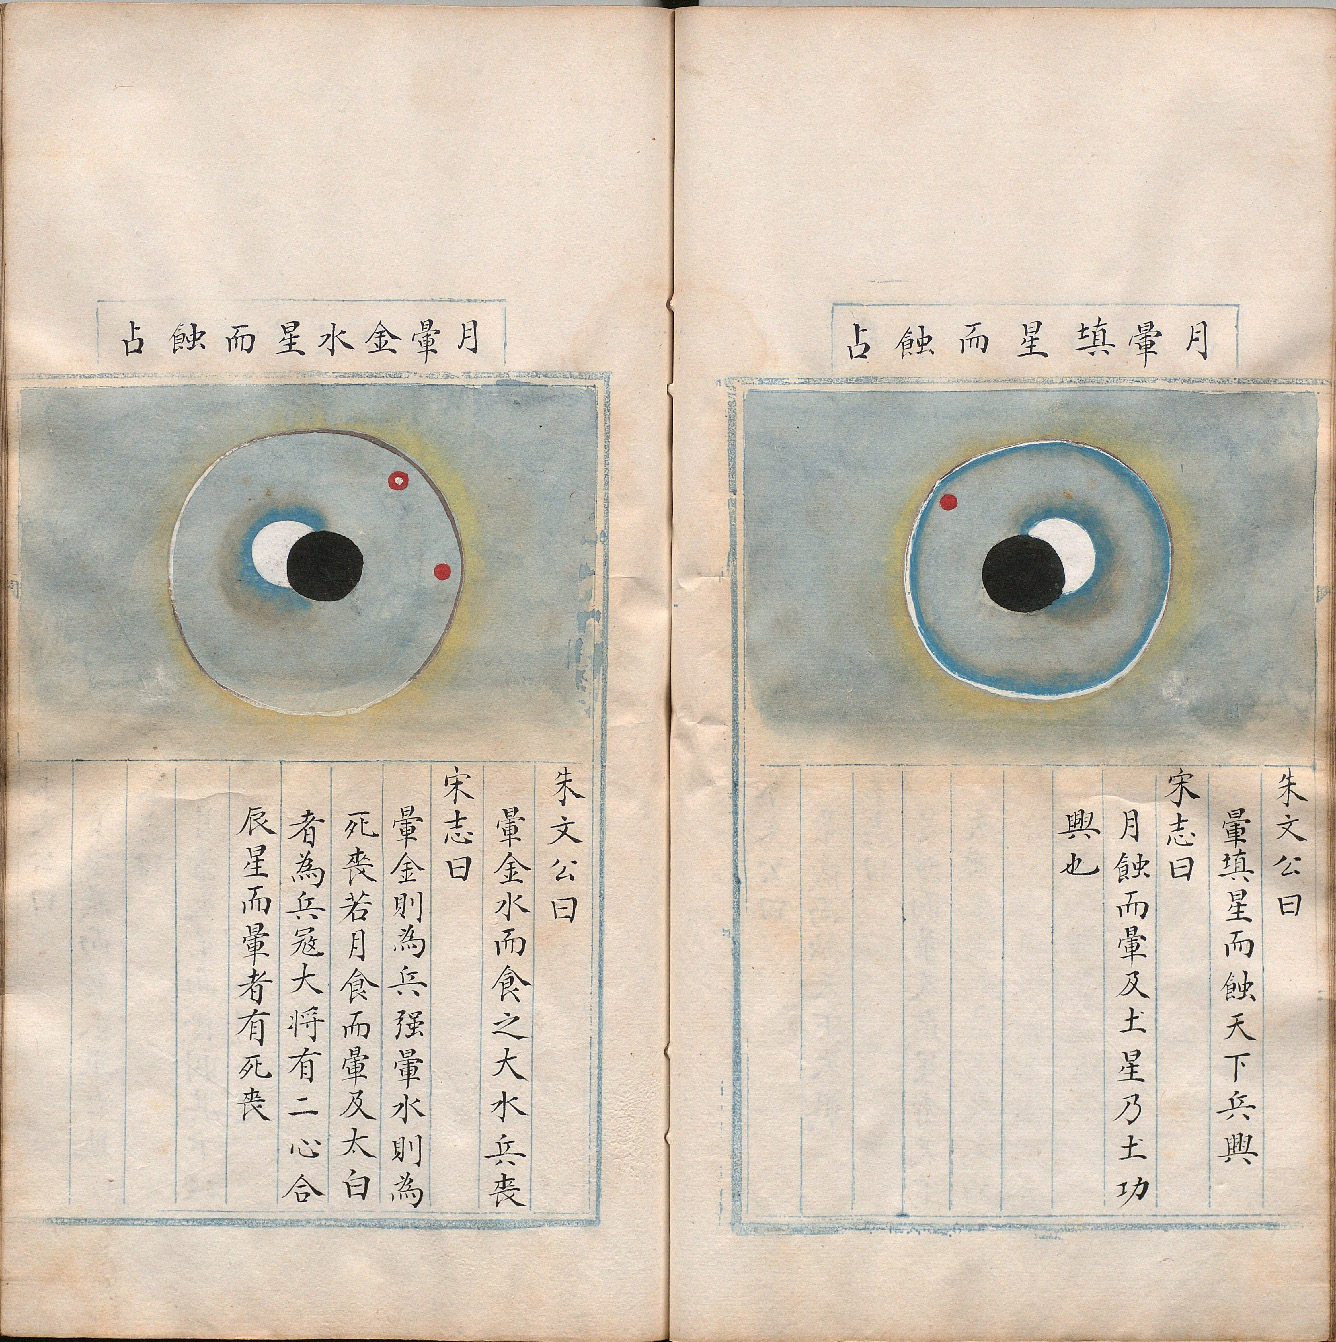 月暈填星而蝕占
朱文公曰
暈填星而蝕天下兵興
宋志曰
月蝕而暈及土星乃土功
興也
月暈金水星而蝕占
朱文公曰
暈金水而食之大水兵喪
宋志曰
暈金則為兵强暈水則為
死喪若月食而暈及太白
者為兵寇大将有二心合
辰星而暈者有死喪